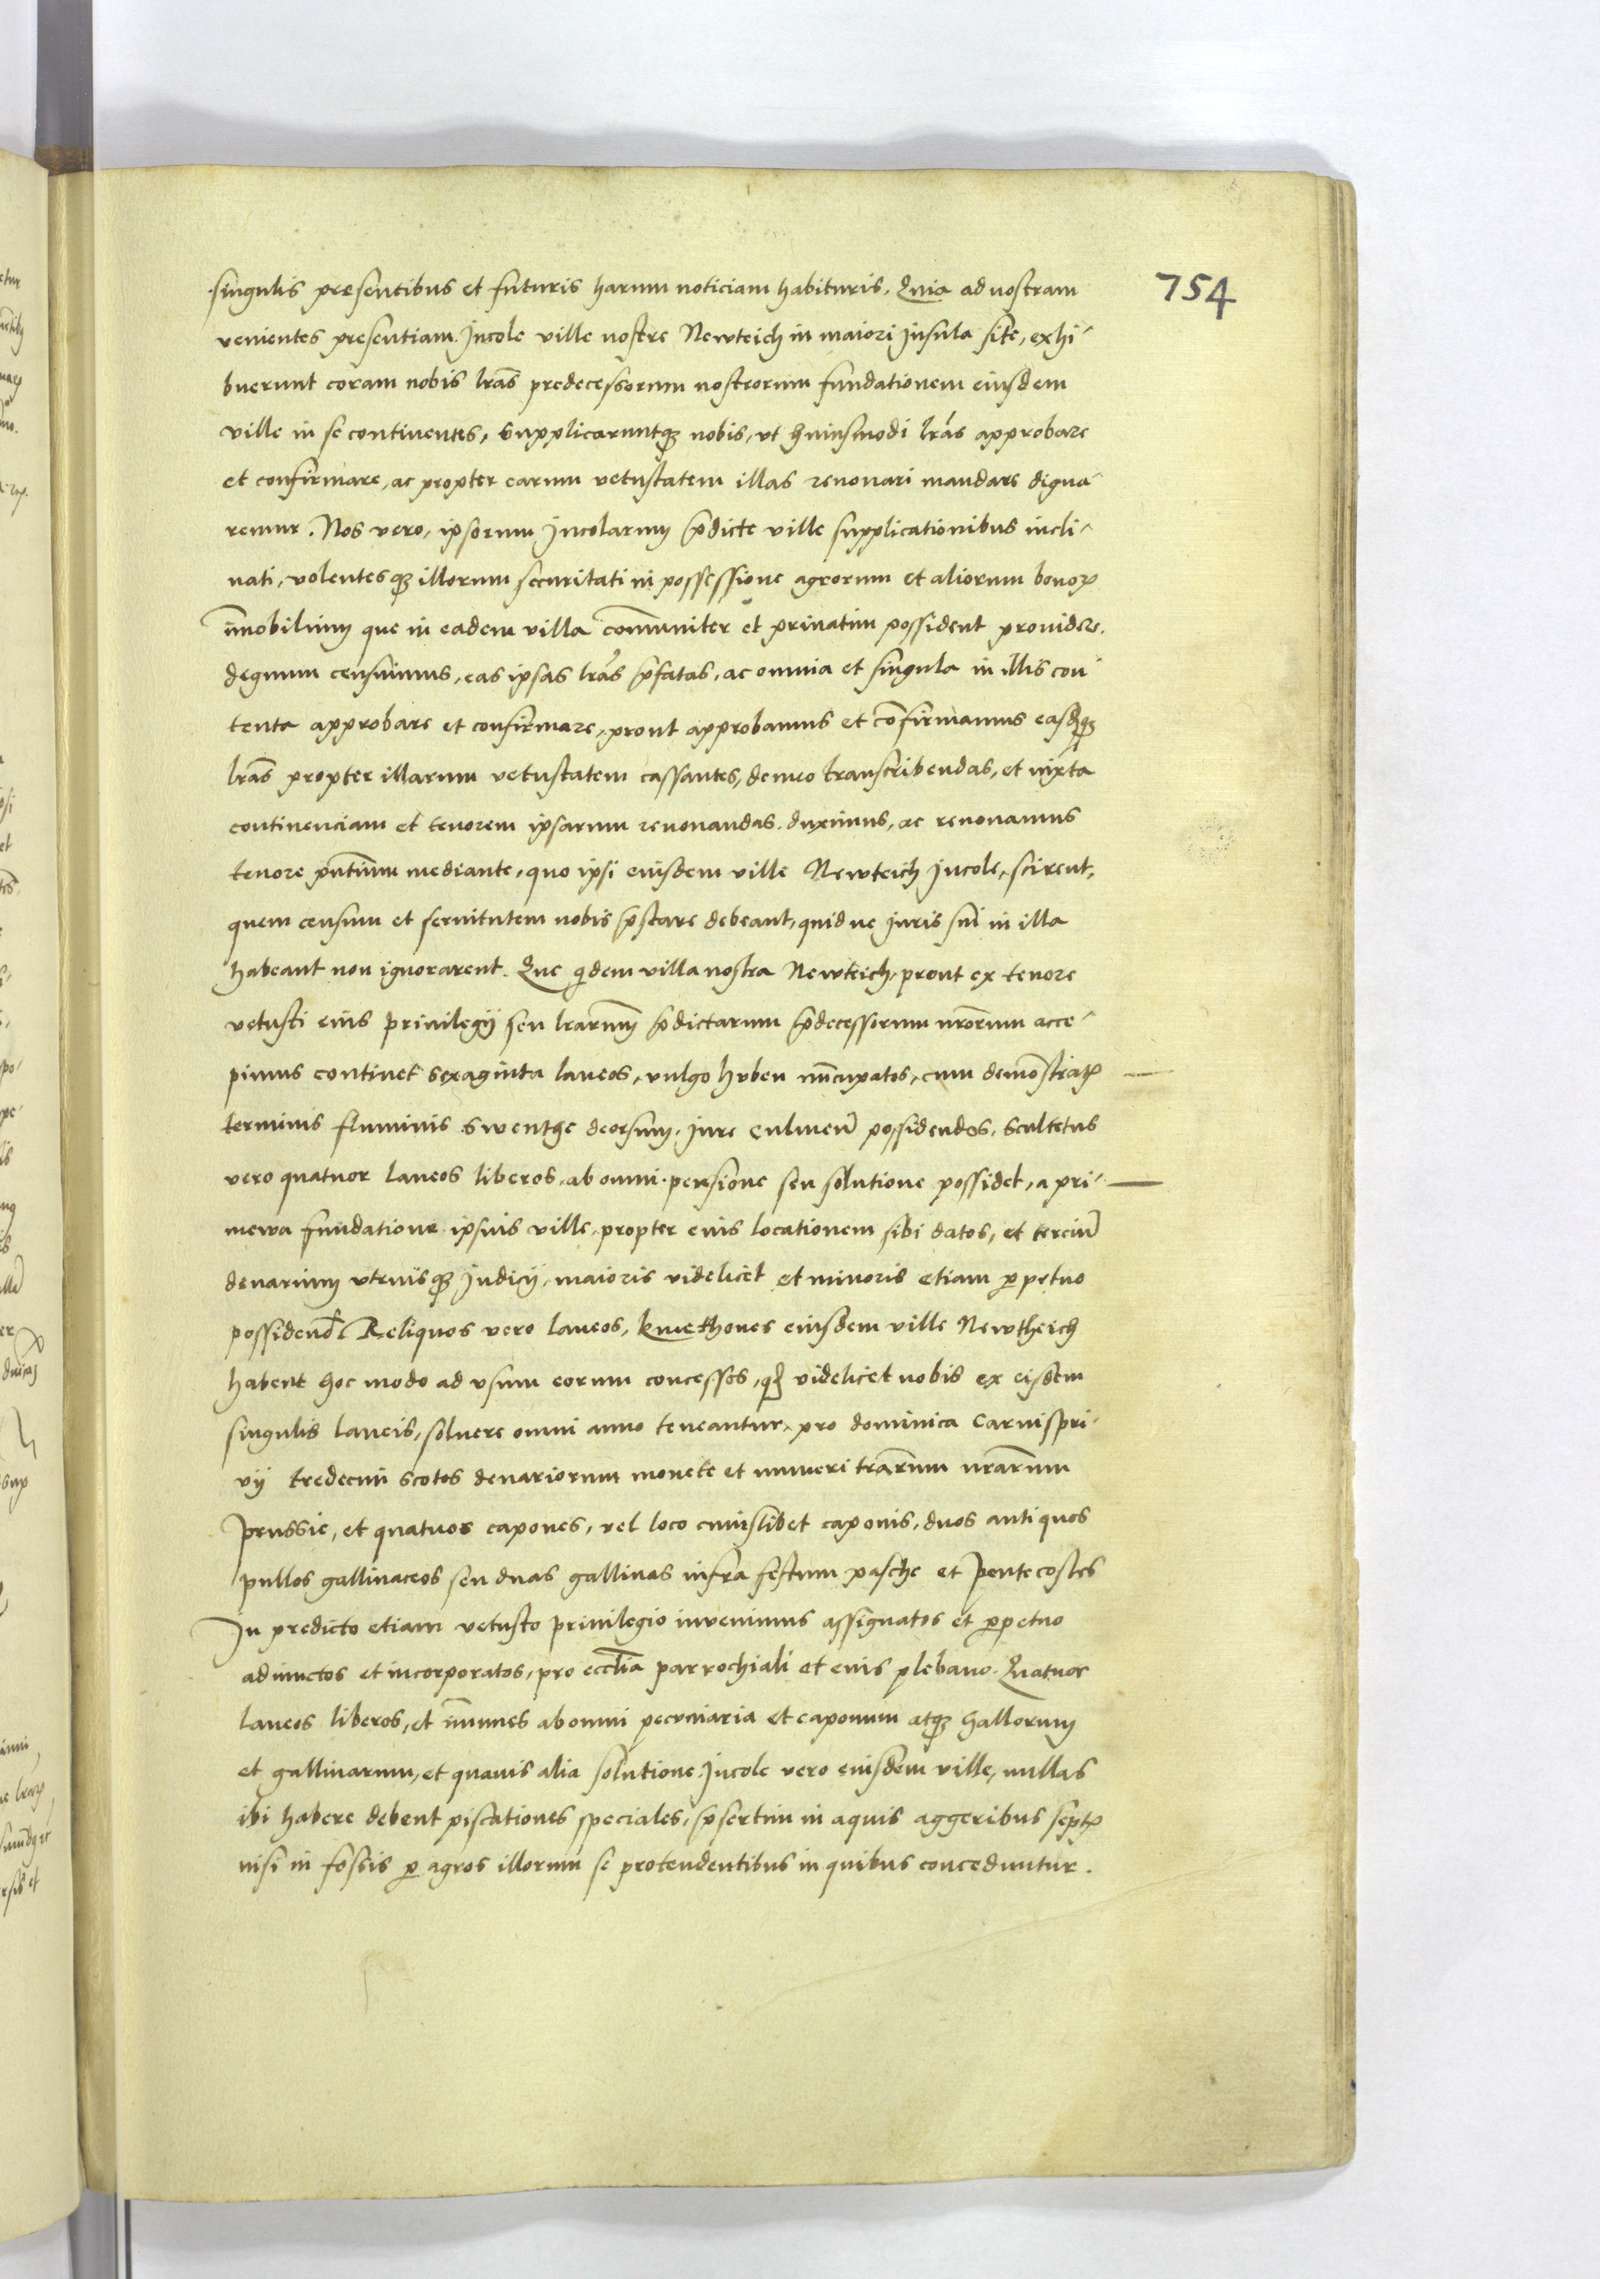 754
singulis presentibus et futuris harum noticiam habituris. Quia ad nostram
venientes presentiam. Incole ville nostre Newteich in maiori Insula site, exhi-
buerunt coram nobis lras predecessorum nostrorum fundationem eiusdem
ville in se continentes, Supplicaruntq nobis, vt huiusmodi lras approbare
et confirmare, ac propter earum vetustatem illas renouari mandare digna-
remur. Nos vero, ipsorum Incolarum pdicte ville supplicationibus incli-
nati, volentesq illorum securitati in possessione agrorum et aliorum bonor
imobilium que in eadem villa comuniter et priuatim possident prouidere.
degnum censuimus, eas ipsas lras pfatas, ac omnia et singula in illis con-
tenta approbare et confirmare, prout approbamus et confirmamus easdq
lras propter illarum vetustatem cassantes, denuo transcribendas, et iuxta
continenciam et tenorem ipsarum renouandas duximus, ac renouamus
tenore pntium mediante, quo ipsi eiusdem ville Newteich Incole, scirent,
quem censum et seruitutem nobis pstare debeant, quid ue Juris sui in illa
habeant non ignorarent. Que qdem villa nostra Newteich, prout ex tenore
vetusti eius priuilegij seu lrarum pdictarum pdecessorum nrorum acce-
pimus continet sexaginta laneos, vulgo huben nucupatos, cum demostrat
terminis fluminis Swenthe deorsum, Jure Culmen possidendos, Scultetus
vero quatuor laneos liberos, ab omni pensione seu solutione possidet, a pri-
mewa fundatione ipsius ville, propter eius locationem sibi datos, et terciu
denarium vtriusq Judicij, maioris videlicet et minoris etiam ppetuo
possidend Reliquos vero laneos, kmethones eiusdem ville Newtheich
habent hoc modo ad vsum eorum concessos, q videlicet nobis ex eisdem
singulis laneis, soluere omni anno teneantur, pro dominica Carnispri-
vij tredecim scotos denariorum monete et numeri trarum nrarum
Prussie, et quatuor capones, vel loco cuiuslibet caponis, duos antiquos
pullos gallinaceos seu duas gallinas infra festum pasche et Pentecostes
In predicto etiam vetusto priuilegio inuenimus assignatos et ppetuo
adiunctos et incorporatos, pro ecclia parrochiali et eius plebano. Quatuor
laneos liberos, et imunes ab omni pecuniaria et caponum atq Gallorum
et gallinarum, et quauis alia solutione. Incole vero eiusdem ville, nullas
ibi habere debent piscationes speciales, psertim in aquis aggeribus sept
nisi in fossis p agros illorum se protendentibus in quibus conceduntur.